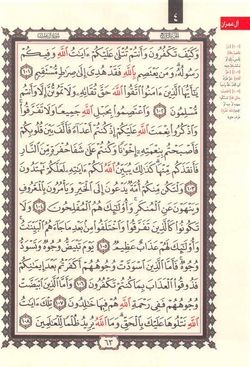 آل عمران
٤
وَكَيْفَ تَكْفُرُونَ وَأَنتُمْ تُتْلَىٰ عَلَيْكُمْ ءَايَٰتُ ٱللَّهِ وَفِيكُمْ
رَسُولُهُۥ وَمَن يَعْتَصِم بِٱللَّهِ فَقَدْ هُدِىَ إِلَىٰ صِرَٰطٍ مُّسْتَقِيمٍ ١٠١
يَٰٓأَيُّهَا ٱلَّذِينَ ءَامَنُوا۟ ٱتَّقُوا۟ ٱللَّهَ حَقَّ تُقَاتِهِۦ وَلَا تَمُوتُنَّ إِلَّا وَأَنتُم
مُّسْلِمُونَ ١٠٢ وَٱعْتَصِمُوا۟ بِحَبْلِ ٱللَّهِ جَمِيعًا وَلَا تَفَرَّقُوا۟
وَٱذْكُرُوا۟ نِعْمَتَ ٱللَّهِ عَلَيْكُمْ إِذْ كُنتُمْ أَعْدَآءً فَأَلَّفَ بَيْنَ قُلُوبِكُمْ
فَأَصْبَحْتُم بِنِعْمَتِهِۦٓ إِخْوَٰنًا وَكُنتُمْ عَلَىٰ شَفَا حُفْرَةٍ مِّنَ ٱلنَّارِ
فَأَنقَذَكُم مِّنْهَا كَذَٰلِكَ يُبَيِّنُ ٱللَّهُ لَكُمْ ءَايَٰتِهِۦ لَعَلَّكُمْ تَهْتَدُونَ
١٠٣ وَلْتَكُن مِّنكُمْ أُمَّةٌ يَدْعُونَ إِلَى ٱلْخَيْرِ وَيَأْمُرُونَ بِٱلْمَعْرُوفِ
وَيَنْهَوْنَ عَنِ ٱلْمُنكَرِ وَأُو۟لَٰٓئِكَ هُمُ ٱلْمُفْلِحُونَ ١٠٤ وَلَا تَكُونُوا۟
كَٱلَّذِينَ تَفَرَّقُوا۟ وَٱخْتَلَفُوا۟ مِنۢ بَعْدِ مَا جَآءَهُمُ ٱلْبَيِّنَٰتُ
وَأُو۟لَٰٓئِكَ لَهُمْ عَذَابٌ عَظِيمٌ ١٠٥ يَوْمَ تَبْيَضُّ وُجُوهٌ وَتَسْوَدُّ
وُجُوهٌ فَأَمَّا ٱلَّذِينَ ٱسْوَدَّتْ وُجُوهُهُمْ أَكَفَرْتُم بَعْدَ إِيمَٰنِكُمْ
فَذُوقُوا۟ ٱلْعَذَابَ بِمَا كُنتُمْ تَكْفُرُونَ ١٠٦ وَأَمَّا ٱلَّذِينَ ٱبْيَضَّتْ
وُجُوهُهُمْ فَفِى رَحْمَةِ ٱللَّهِ هُمْ فِيهَا خَٰلِدُونَ ١٠٧ تِلْكَ ءَايَٰتُ
ٱللَّهِ نَتْلُوهَا عَلَيْكَ بِٱلْحَقِّ وَمَا ٱللَّهُ يُرِيدُ ظُلْمًا لِّلْعَٰلَمِينَ ١٠٨
٦٣